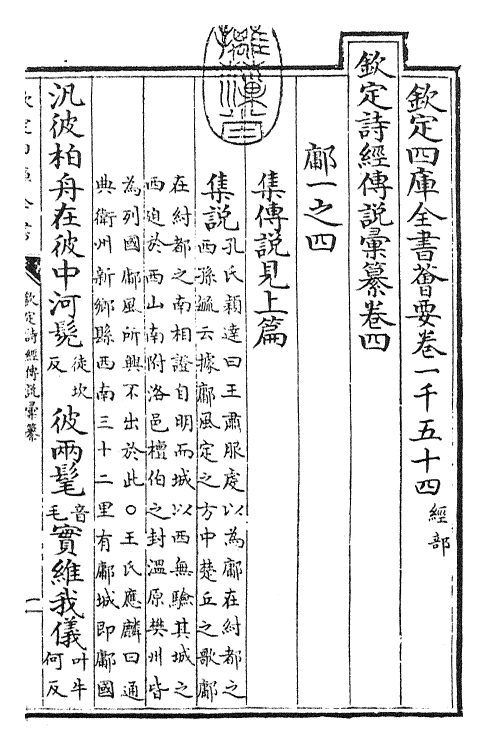 欽定四庫全書薈要卷一千五十四 經部
欽定詩經傳說彙纂卷四
鄘一之四
集傳說見上篇
集說 孔氏穎達曰王肅服虔以為鄘在紂都之
西孫毓云據鄘風定之方中楚丘之歌鄘
在紂都之南相證自明而城以西無驗其城之
西迫於西山南附洛邑檀伯之封溫原樊州皆
為列國鄘風所興不出於此○王氏應麟曰通
典衛州新鄉縣西南三十二里有鄘城即鄘國
汎彼柏舟在彼中河髧 徒坎反 彼兩髦 音毛 實維我儀 叶牛何反
欽定詩經傳說彙纂